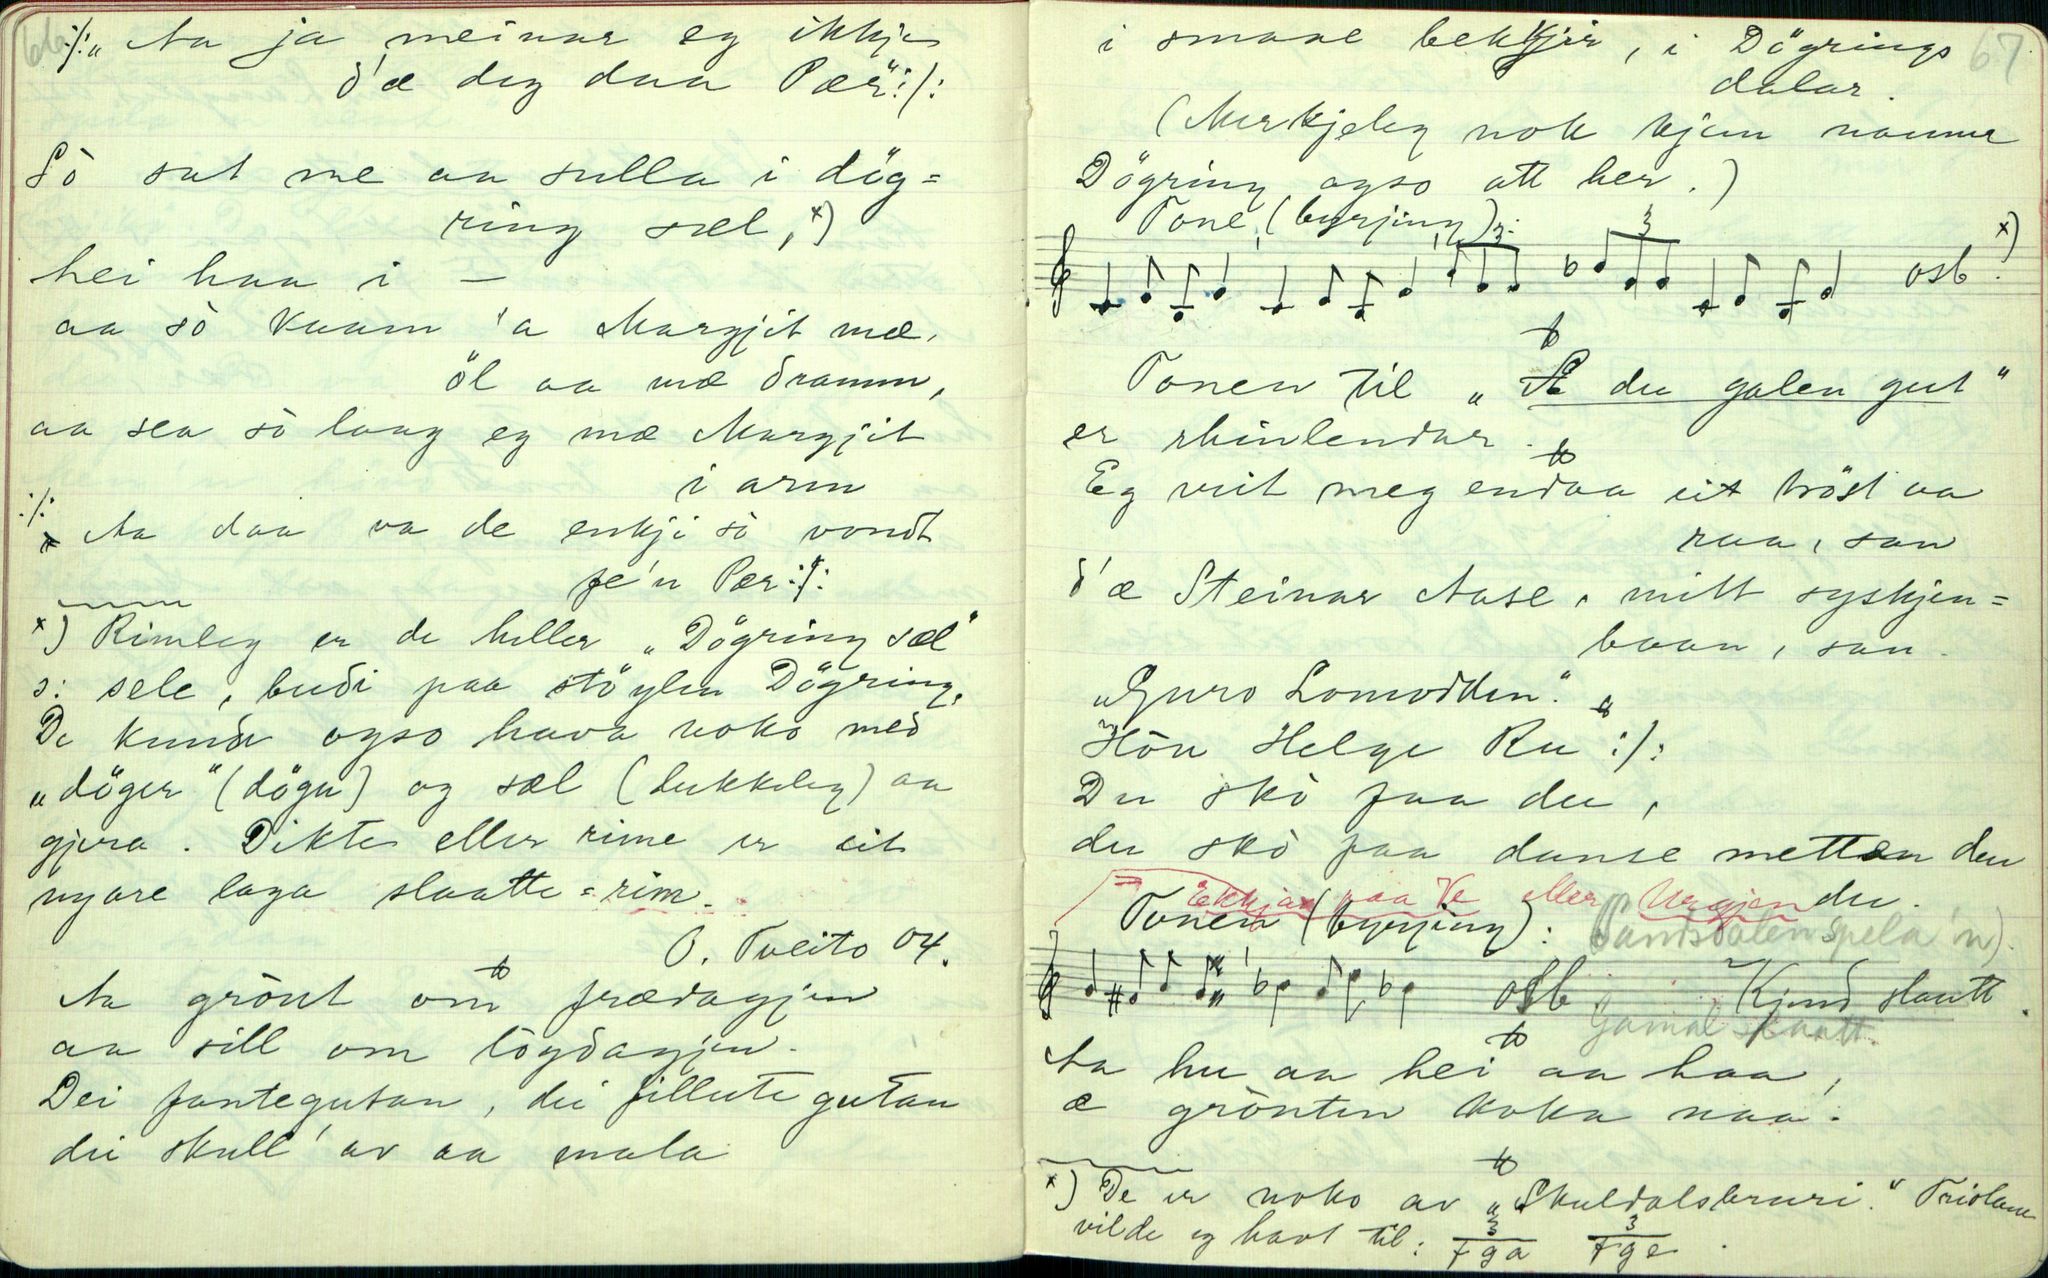 66
:/: „Aa ja meinar eg ikkje
d'æ deg daa Pær":/:
Sò sat me aa sulla i dög=
ring sæl, x)
hei haa i —
aa sò kaam 'a Margjit mæ,
öl aa mæ dramm,
aa sea sò laag eg mæ Margjit
i arm
:/: Aa daa va de enkji sò vondt
fe'n Pær :/:
x) Rimleg er de heller „Dögring sæl"
ɔ: sele, budi paa stöylen Dögring.
De kunde ogso hava noko med
„döger" (dögn) og sæl (lukkeleg) aa
gjera. Dikte eller rime er eit
nyare laga slaatte=rim.
O. Tveito 04.
Aa grönt om frædagjen
aa sill om lögdagjen.
Dei fantegutan, dei fillute gutan
dei skull' av aa mala
67
i smaae bekkjir, i Dögrings
dalar.
(Merkjeleg nok kjem namne
Dögring ogso att her.)
Tone (byrjing):
osb. x)
Tonen til „Æ du galen gut"
er rhinlendar.
Eg veit meg endaa eit tröst aa
raa, san
d'æ Steinar Aase, mitt syskjen=
baan, san.
„Guro Lomodden."
„Hön Helge Ru :/:
Du skò faa du,
du skò faa danse metten du
du.
Ekkjan paa Ve eller Urgjen
Tonen (byrjing): (Sandsdalen spela 'n).
osb Kjend slaatt.
Gamal slaatt.
Aa hu aa hei aa haa,
æ grönten koka naa.
x) De er noko av „Skuldalsbruri." Triolane
vilde eg havt til: 3 f g a 3 f g e.